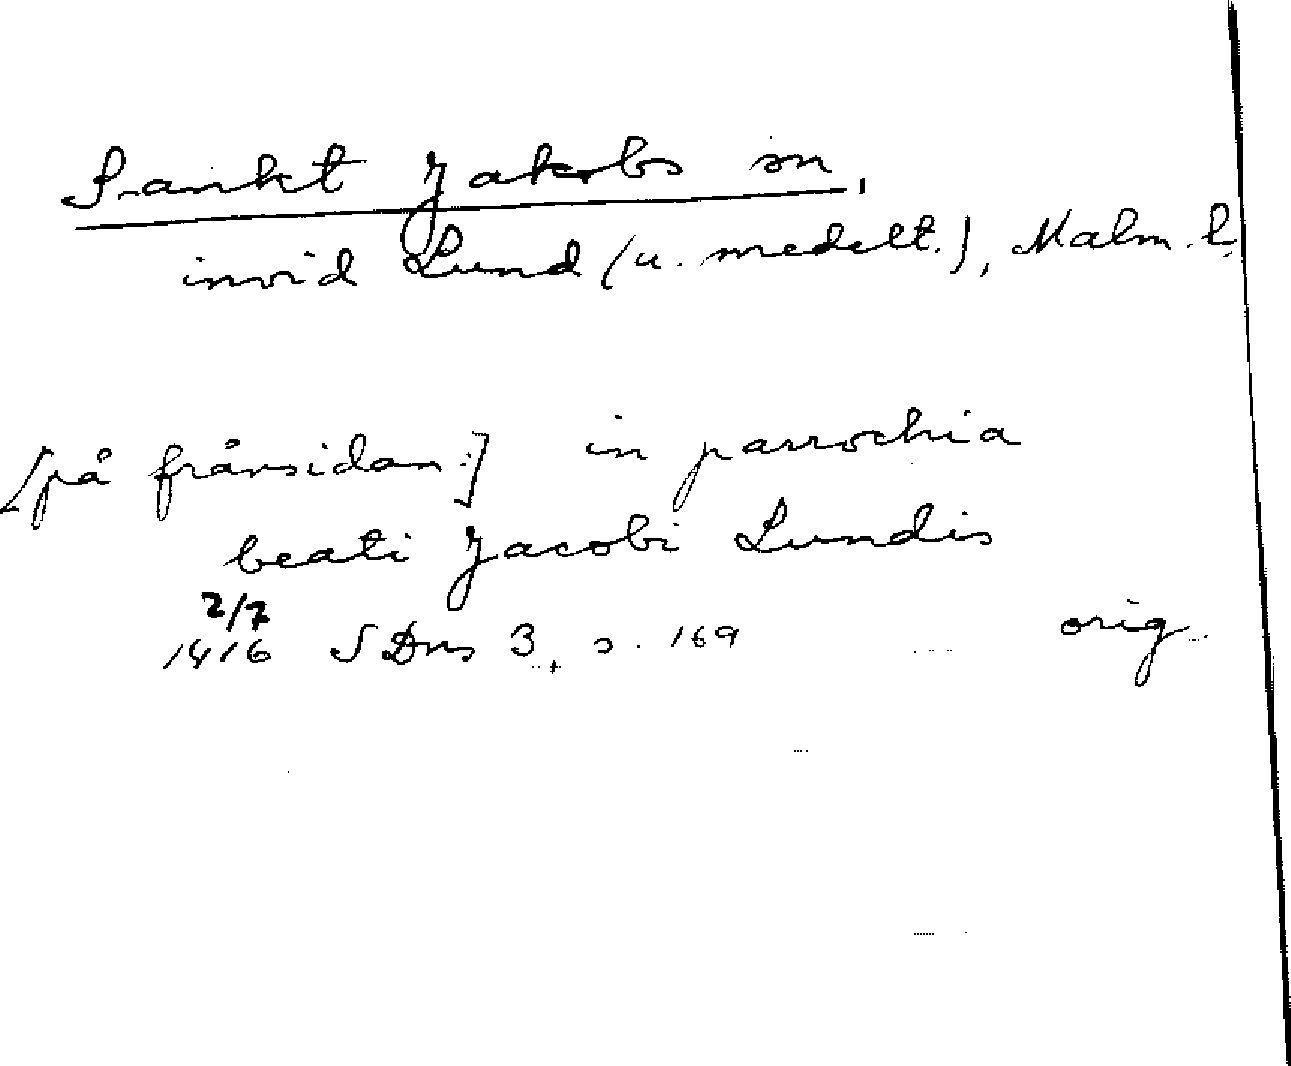 Sankt Jakobs sn,
invid Lund (u. medelt.), Malm. l.
[på frånsidan:] in parrochia
beati Jacobi Lundis
2/7
1416 SDns 3, s. 169 orig.